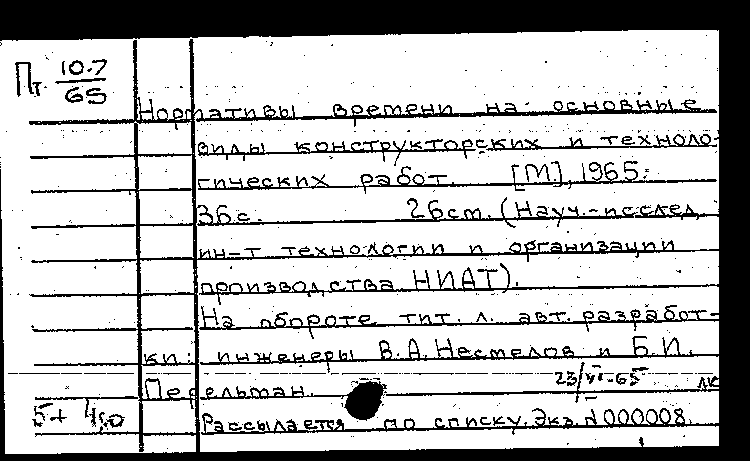 Пт. 10.7
65
Нормативы времени на основные
виды конструкторских и техноло-
гических работ. [М], 1965.
36с. 26см. (Науч.-исслед.
ин-т технологии и организации
производства НИАТ).
На обороте тит. л. авт. разработ-
ки: инженеры В.А. Нестелов и Б.И.
Перельман.
23/VI-65
5+
Рассылается по списку. Экз. №000008.